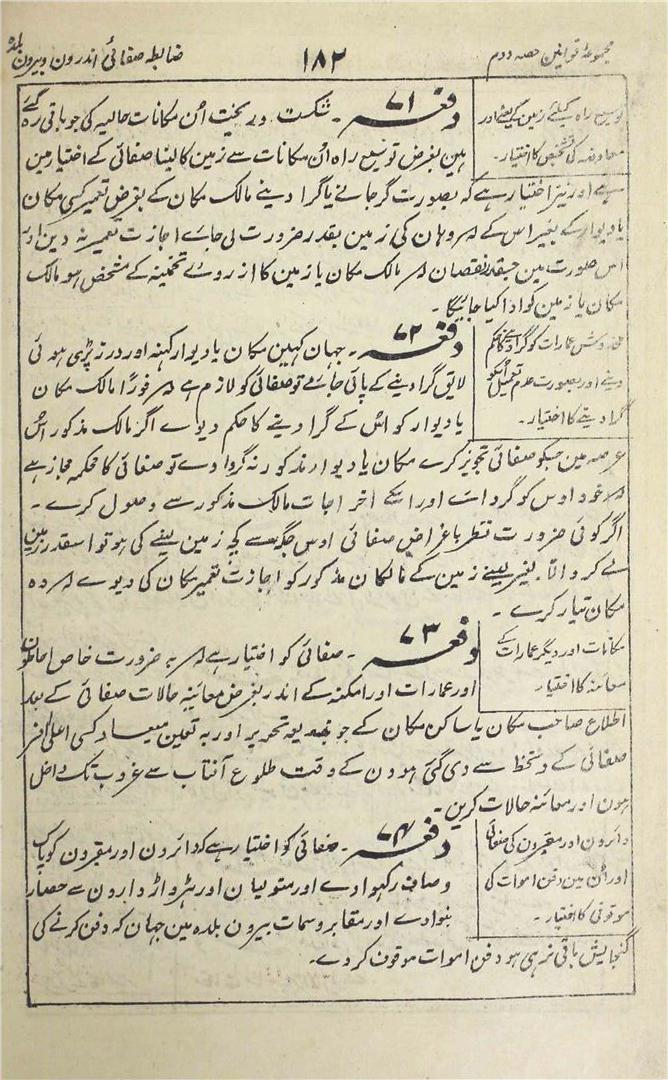 مجموعۂ قوانین حصہ دوم
۱۸۲
ضابطہ صفائی اندرون وبیرون بلدہ
توسیع راہ کیلئے زمین لینے اور
معاوضہ کی تشخیص کا اختیار۔
دفعہ ۷۱ ۔ شکست وریخت اُن مکانات حالیہ کی جو باقی رہ گئے
ہین بغرض توسیع راہ اُن مکانات سے زمین کا لینا صفائی کے اختیار مین
ہے اور نیز اختیار ہے کہ بصورت گر جانے یا گرا دینے مالک مکان کے بغرض تعمیر کسی مکان
یا دیوار کے بغیر اس کے کہ وہان کی زمین بقدر ضرورت لی جاے اجازت تعمیر نہ دین اور
اس صورت مین جسقدر نقصان کہ مالک مکان یا زمین کا از روے تخمینہ کے مشخص ہو مالک
مکان یا زمین کو ادا کیا جائیگا۔
مخدوش عمارات کو گرا دینے کا حکم
دینے اور بصورت عدم تعمیل اسکو
گرا دینے کا اختیار۔
دفعہ ۷۲ ۔ جہان کہین مکان یا دیوار کہنہ اور درز پڑی ہوئی
لایق گرا دینے کے پائی جاے تو صفائی کو لازم ہے کہ فوراً مالک مکان
یا دیوار کو اُس کے گرا دینے کا حکم دیوے اگر مالک مذکور اُس
عرصہ مین جسکو صفائی تجویز کرے مکان یا دیوار مذکور نہ گروا دے تو صفائی کا محکمہ مجاز ہے
کہ خود اوس کو گروادے اور اسکے اخراجات مالک مذکور سے وصول کرے۔
اگر کوئی ضرورت نظر باغراض صفائی اوس جگہ سے کچہ زمین لینے کی ہو تو اسقدر زمین
لے کر والّا۔ بغیر لینے زمین کے مالکان مذکور کو اجازت تعمیر مکان کی دیوے کہ وہ
مکان تیار کرے۔
مکانات اور دیگر عمارات کے
معائنہ کا اختیار۔
دفعہ ۷۳ ۔ صفائی کو اختیار ہے کہ بہ ضرورت خاص احاطون
اور عمارات اور امکنہ کے اندر بغرض معائنہ حالات صفائی کے بعد
اطلاع صاحب مکان یا ساکن مکان کے جو بذریعہ تحریر اور بہ تعین میعاد کسی اعلیٰ افسر
صفائی کے دستخط سے دی گئی ہو دن کے وقت طلوع آفتاب سے غروب تک داخل
ہون اور معائنہ حالات کرین۔
دائرون اور مقبرون کی صفائی
اور اُن مین دفن اموات کی
موقوفی کا اختیار۔
دفعہ ۷۴ ۔ صفائی کو اختیار ہے کہ دائرون اور مقبرون کو پاک
وصاف رکہوا دے اور متولیان اور ہڑواڑ دارون سے حصار
بنوا دے اور مقابر وسمات بیرون بلدہ مین جہان کہ دفن کرنے کی
گنجایش باقی نرہی ہو دفن اموات موقوف کر دے۔